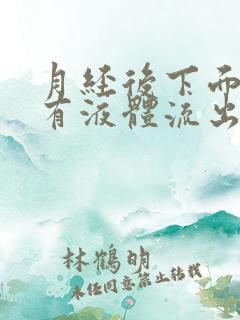 月经後下面
有液體流出
林鶴明
未经同意禁止转载